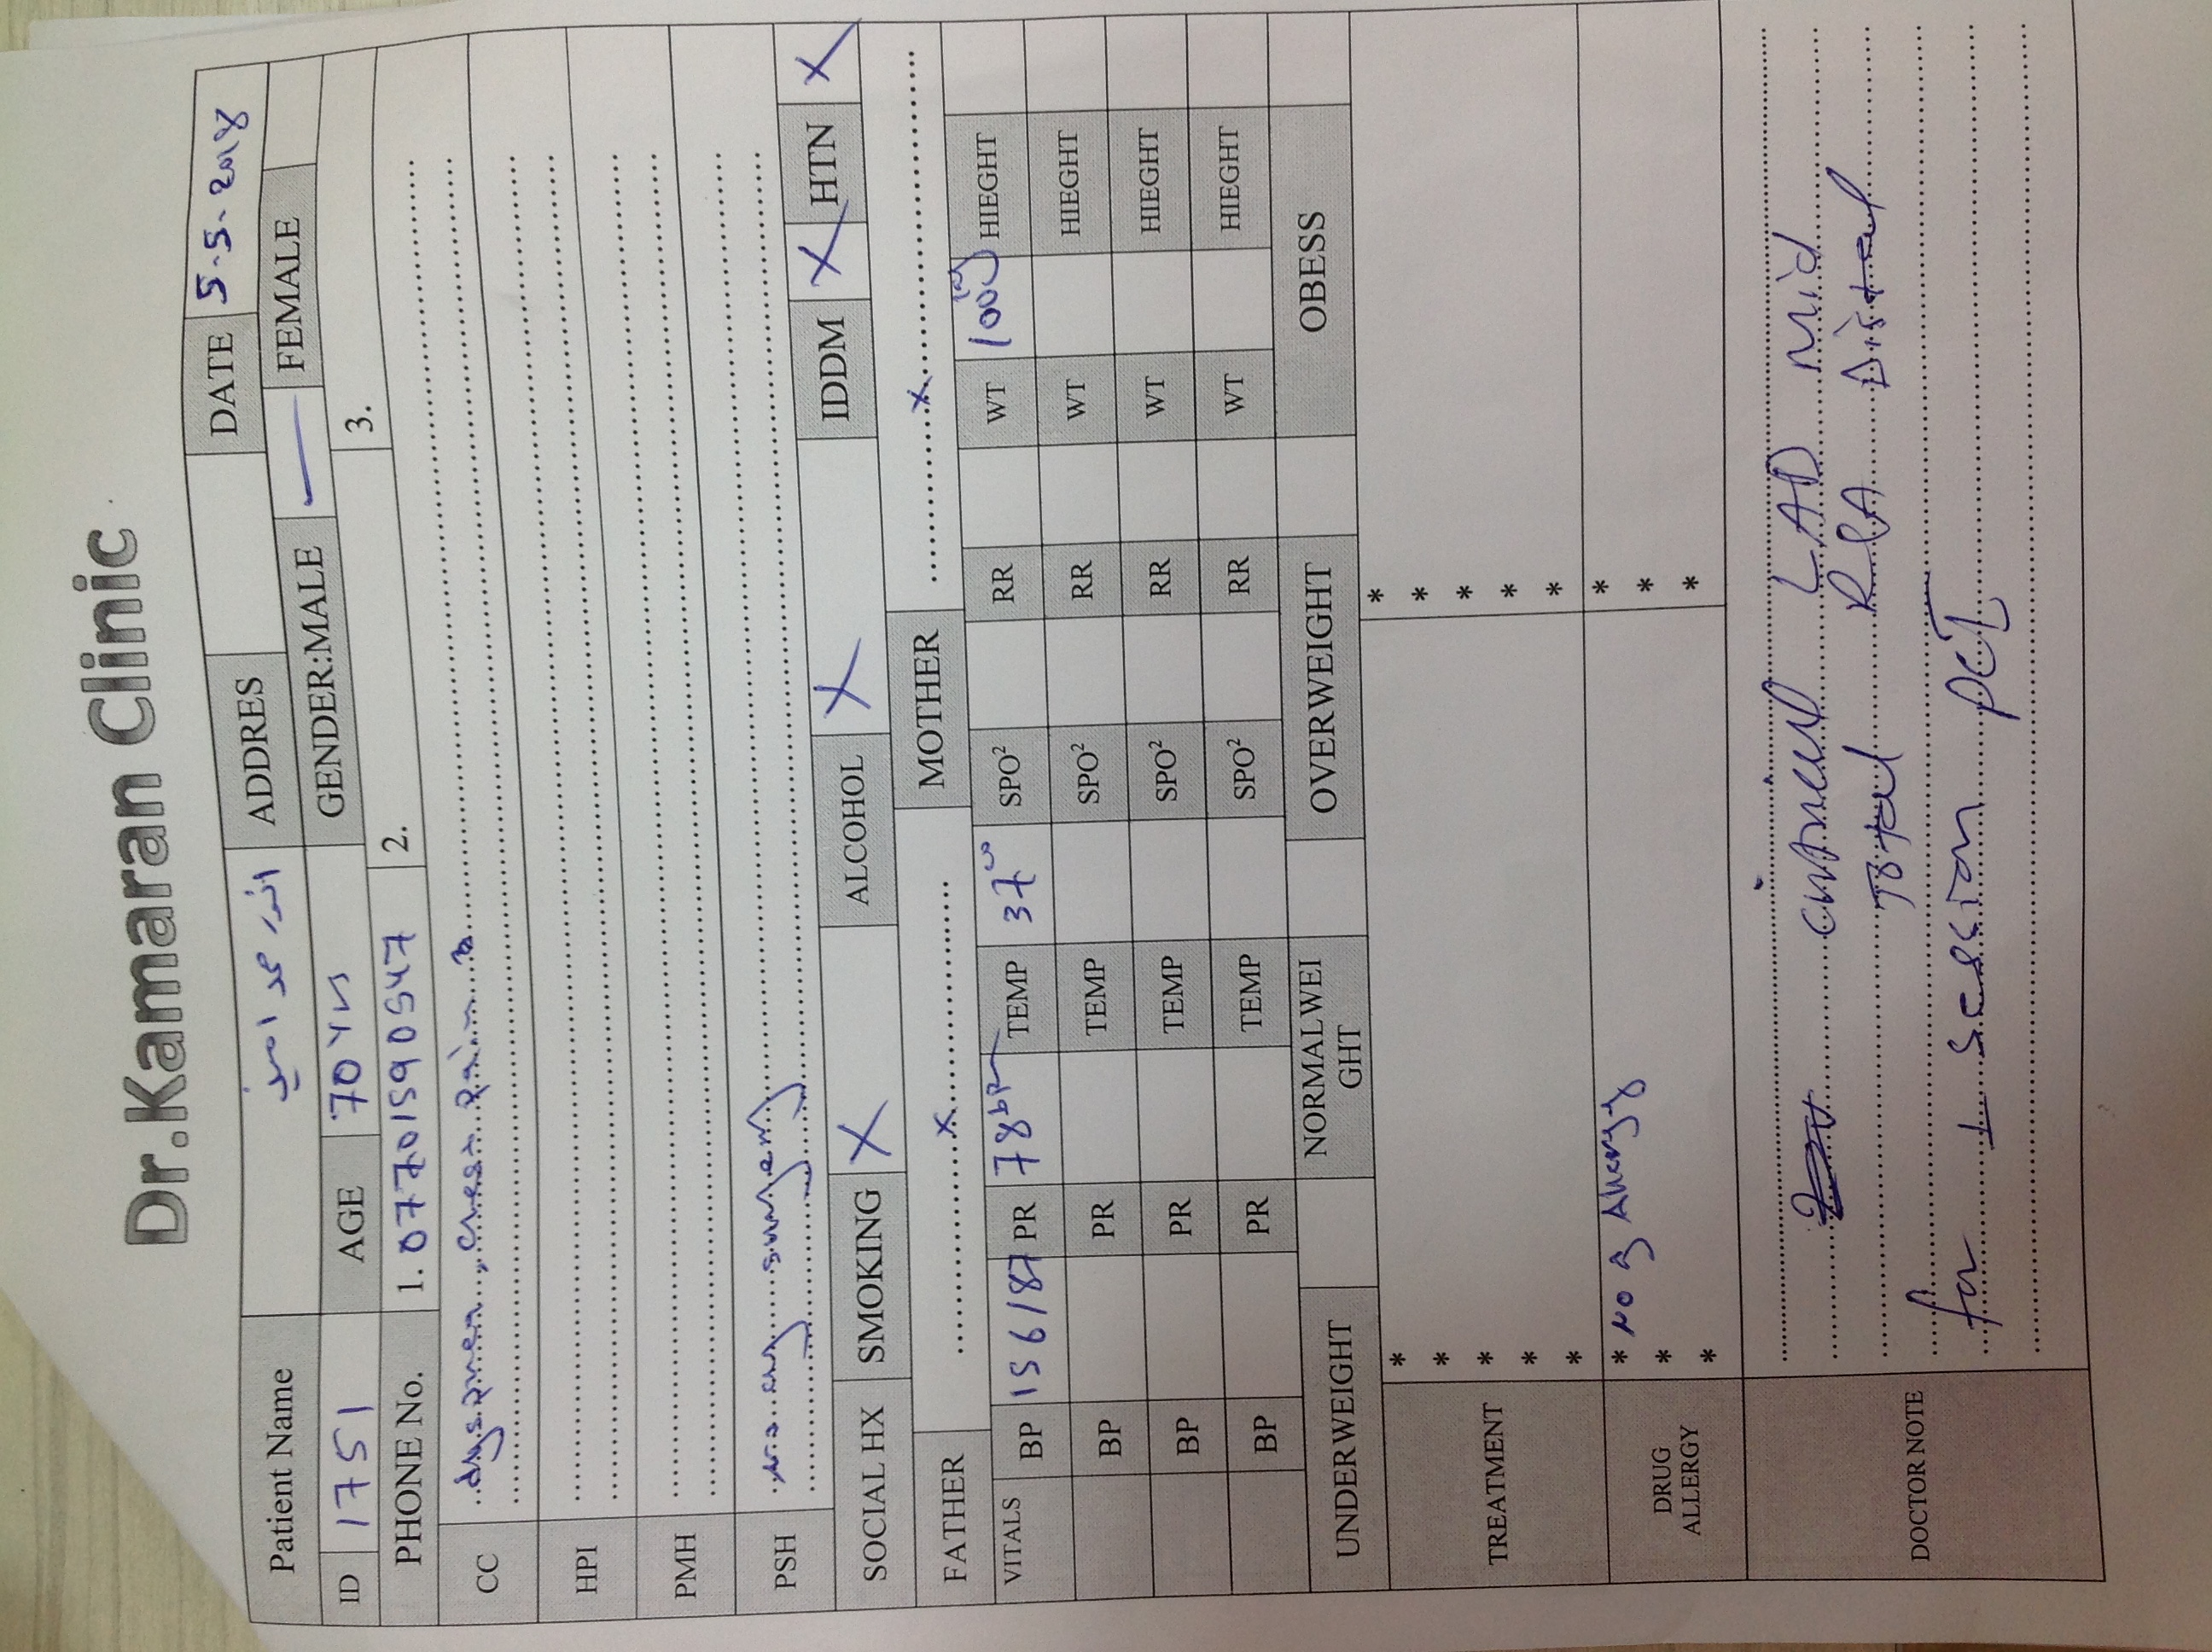 Dr.Kamaran Clinic
Patient Name ADDRES DATE 5.5.2018
ID 1751 AGE 70 Yrs GENDER:MALE FEMALE
PHONE No. 1. 07701590547 2. 3.
CC dyspnea, chest pain
HPI
PMH
PSH no any surgery
SOCIAL HX SMOKING X ALCOHOL X IDDM X HTN X
FATHER x MOTHER x
VITALS BP 156/87 PR 78 bpm TEMP 37 SPO² RR WT 100 kg HIEGHT
BP PR TEMP SPO² RR WT HIEGHT
BP PR TEMP SPO² RR WT HIEGHT
BP PR TEMP SPO² RR WT HIEGHT
UNDERWEIGHT NORMALWEI
GHT OVERWEIGHT OBESS
TREATMENT * *
* *
* *
* *
* *
DRUG
ALLERGY * No Allergy *
* *
* *
DOCTOR NOTE
LAD mid
Total RCA Distal
for 1 session PCI